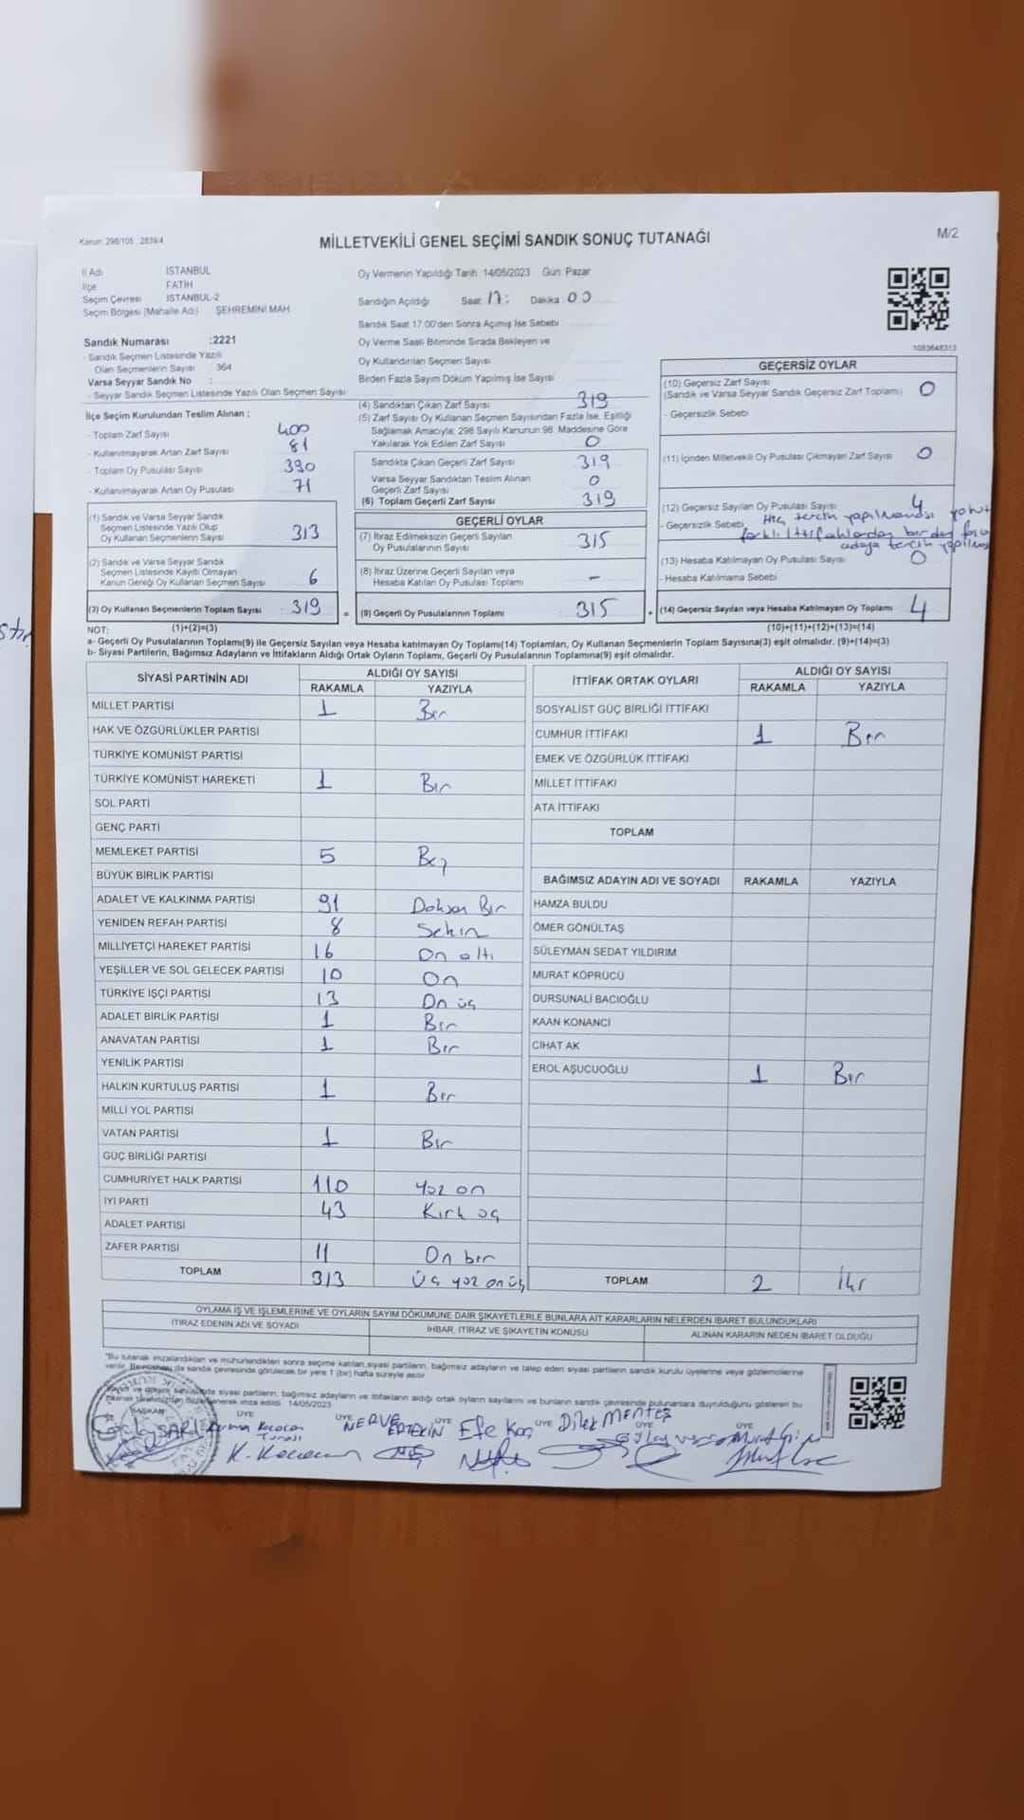 Kanun: 298/105 , 2839/4
MİLLETVEKİLİ GENEL SEÇİMİ SANDIK SONUÇ TUTANAĞI
M/2
İl Adı İSTANBUL
İlçe FATİH
Seçim Çevresi İSTANBUL-2
Seçim Bölgesi (Mahalle Adı) ŞEHREMİNİ MAH
Sandık Numarası :2221
- Sandık Seçmen Listesinde Yazılı
Olan Seçmenlerin Sayısı 364
Varsa Seyyar Sandık No :
- Seyyar Sandık Seçmen Listesinde Yazılı Olan Seçmen Sayısı
Oy Vermenin Yapıldığı Tarih 14/05/2023 Gün: Pazar
Sandığın Açıldığı Saat 17: Dakika 00
Sandık Saat 17.00'den Sonra Açılmış İse Sebebi
Oy Verme Saati Bitiminde Sırada Bekleyen ve
Oy Kullandırılan Seçmen Sayısı
Birden Fazla Sayım Döküm Yapılmış İse Sayısı
1083648313
İlçe Seçim Kurulundan Teslim Alınan :
- Toplam Zarf Sayısı 400
- Kullanılmayarak Artan Zarf Sayısı 81
- Toplam Oy Pusulası Sayısı 390
- Kullanılmayarak Artan Oy Pusulası 71
(1) Sandık ve Varsa Seyyar Sandık
Seçmen Listesinde Yazılı Olup
Oy Kullanan Seçmenlerin Sayısı 313
(2) Sandık ve Varsa Seyyar Sandık
Seçmen Listesinde Kayıtlı Olmayan
Kanun Gereği Oy Kullanan Seçmen Sayısı 6
(3) Oy Kullanan Seçmenlerin Toplam Sayısı 319
(1)+(2)=(3)
(4) Sandıktan Çıkan Zarf Sayısı 319
(5) Zarf Sayısı Oy Kullanan Seçmen Sayısından Fazla İse, Eşitliği
Sağlamak Amacıyla; 298 Sayılı Kanunun 98. Maddesine Göre
Yakılarak Yok Edilen Zarf Sayısı 0
Sandıkta Çıkan Geçerli Zarf Sayısı 319
Varsa Seyyar Sandıktan Teslim Alınan
Geçerli Zarf Sayısı 0
(6) Toplam Geçerli Zarf Sayısı 319
GEÇERLİ OYLAR
(7) İtiraz Edilmeksizin Geçerli Sayılan
Oy Pusulalarının Sayısı 315
(8) İtiraz Üzerine Geçerli Sayılan veya
Hesaba Katılan Oy Pusulası Toplamı -
= (9) Geçerli Oy Pusulalarının Toplamı 315
GEÇERSİZ OYLAR
(10) Geçersiz Zarf Sayısı
(Sandık ve Varsa Seyyar Sandık Geçersiz Zarf Toplamı) 0
- Geçersizlik Sebebi
(11) İçinden Milletvekili Oy Pusulası Çıkmayan Zarf Sayısı 0
(12) Geçersiz Sayılan Oy Pusulası Sayısı 4
- Geçersizlik Sebebi Hiç tercih yapılmaması yahut
farklı ittifaklardan birden fazla
adaya tercih yapılması
(13) Hesaba Katılmayan Oy Pusulası Sayısı 0
- Hesaba Katılmama Sebebi
+ (14) Geçersiz Sayılan veya Hesaba Katılmayan Oy Toplamı 4
(10)+(11)+(12)+(13)=(14)
NOT:
a- Geçerli Oy Pusulalarının Toplamı(9) ile Geçersiz Sayılan veya Hesaba katılmayan Oy Toplamı(14) Toplamları, Oy Kullanan Seçmenlerin Toplam Sayısına(3) eşit olmalıdır. (9)+(14)=(3)
b- Siyasi Partilerin, Bağımsız Adayların ve İttifakların Aldığı Ortak Oyların Toplamı, Geçerli Oy Pusulalarının Toplamına(9) eşit olmalıdır.
SİYASİ PARTİNİN ADI ALDIĞI OY SAYISI
RAKAMLA YAZIYLA
MİLLET PARTİSİ 1 Bir
HAK VE ÖZGÜRLÜKLER PARTİSİ
TÜRKİYE KOMÜNİST PARTİSİ
TÜRKİYE KOMÜNİST HAREKETİ 1 Bir
SOL PARTİ
GENÇ PARTİ
MEMLEKET PARTİSİ 5 Beş
BÜYÜK BİRLİK PARTİSİ
ADALET VE KALKINMA PARTİSİ 91 Doksan Bir
YENİDEN REFAH PARTİSİ 8 Sekiz
MİLLİYETÇİ HAREKET PARTİSİ 16 On altı
YEŞİLLER VE SOL GELECEK PARTİSİ 10 On
TÜRKİYE İŞÇİ PARTİSİ 13 On üç
ADALET BİRLİK PARTİSİ 1 Bir
ANAVATAN PARTİSİ 1 Bir
YENİLİK PARTİSİ
HALKIN KURTULUŞ PARTİSİ 1 Bir
MİLLİ YOL PARTİSİ
VATAN PARTİSİ 1 Bir
GÜÇ BİRLİĞİ PARTİSİ
CUMHURİYET HALK PARTİSİ 110 Yüz on
İYİ PARTİ 43 Kırk üç
ADALET PARTİSİ
ZAFER PARTİSİ 11 On bir
TOPLAM 313 Üç yüz on üç
İTTİFAK ORTAK OYLARI ALDIĞI OY SAYISI
RAKAMLA YAZIYLA
SOSYALİST GÜÇ BİRLİĞİ İTTİFAKI
CUMHUR İTTİFAKI 1 Bir
EMEK VE ÖZGÜRLÜK İTTİFAKI
MİLLET İTTİFAKI
ATA İTTİFAKI
TOPLAM
BAĞIMSIZ ADAYIN ADI VE SOYADI RAKAMLA YAZIYLA
HAMZA BULDU
ÖMER GÖNÜLTAŞ
SÜLEYMAN SEDAT YILDIRIM
MURAT KÖPRÜCÜ
DURSUNALİ BACIOĞLU
KAAN KONANCİ
CİHAT AK
EROL AŞUCUOĞLU 1 Bir
TOPLAM 2 İki
OYLAMA İŞ VE İŞLEMLERİNE VE OYLARIN SAYIM DÖKÜMÜNE DAİR ŞİKAYETLERLE BUNLARA AİT KARARLARIN NELERDEN İBARET BULUNDUKLARI
İTİRAZ EDENİN ADI VE SOYADI İHBAR, İTİRAZ VE ŞİKAYETİN KONUSU ALINAN KARARIN NEDEN İBARET OLDUĞU
"Bu tutanak imzalandıktan ve mühürlendikten sonra seçime katılan siyasi partilerin, bağımsız adayların ve talep eden siyasi partilerin sandık kurulu üyelerine veya gözlemcilerine
da sandık çevresinde görülecek bir yere 1 (bir) hafta süreyle asılır
siyasi partilerin, bağımsız adayların ve ittifakların aldığı ortak oyların sayılarını ve bunların sandık çevresinde bulunanlara duyurulduğunu gösteren bu
imza edildi. 14/05/2023
BAŞKAN ÜYE ÜYE ÜYE ÜYE ÜYE ÜYE
SARI MERVE ERTEKİN Efe Koç Dilek MENTEŞ